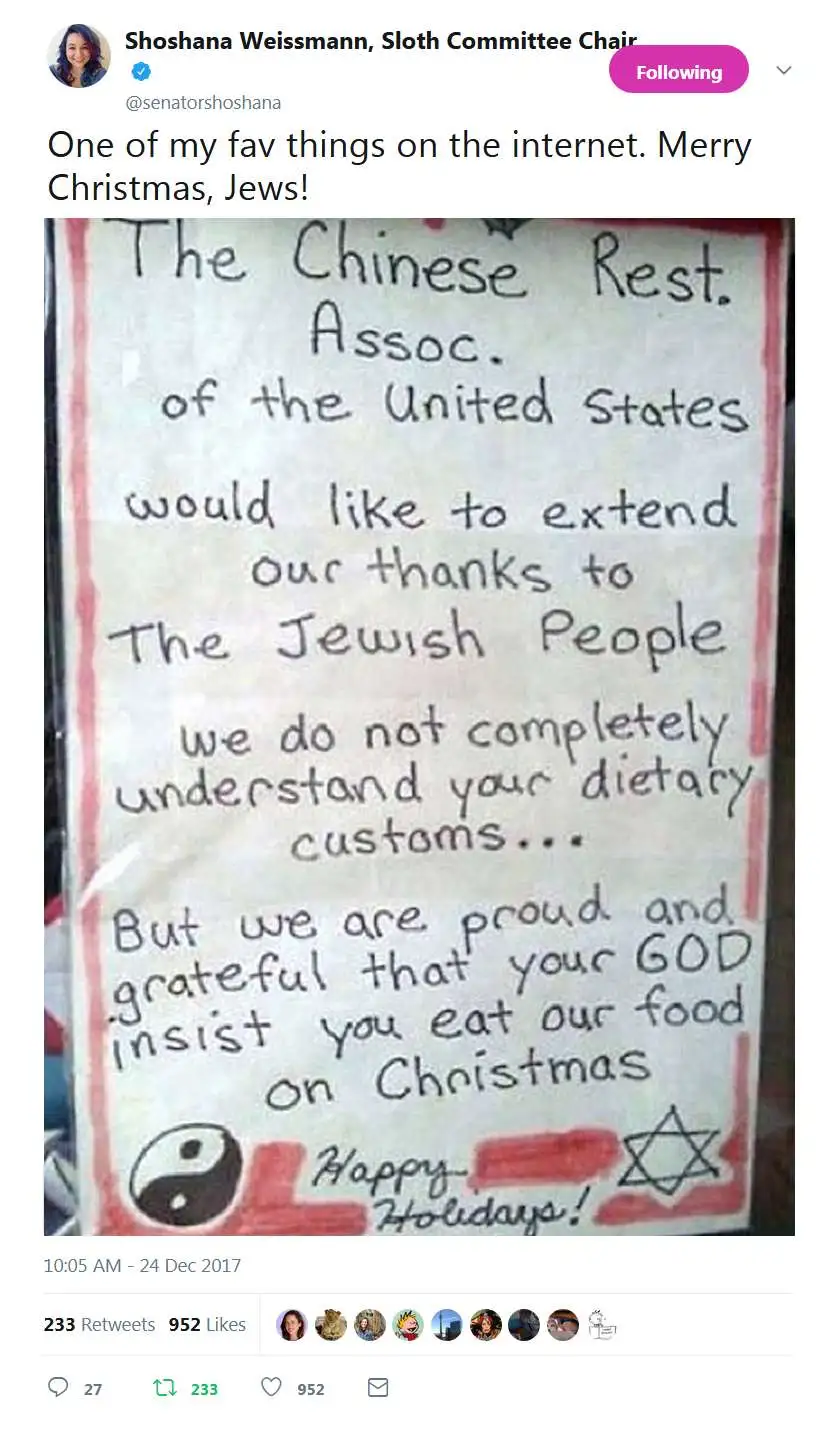 Shoshana Weissmann, Sloth Committee Chair
Following
@senatorshoshana
One of my fav things on the internet. Merry
Christmas, Jews!
The Chinese Rest.
Assoc.
of the United States
would like to extend
our thanks to
The Jewish People
we do not completely
understand your dietary
customs...
But we are proud and
grateful that your GOD
insist you eat our food
on Christmas
Happy
Holidays!
10:05 AM - 24 Dec 2017
233 Retweets 952 Likes
27 233 952